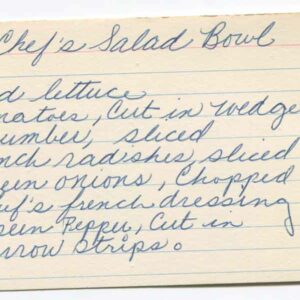 Chef's Salad Bowl
d lettuce
matoes, Cut in wedge
umber, sliced
nch radishes, sliced
een onions, Chopped
ef's french dressing
een Pepper, Cut in
rrow strips.